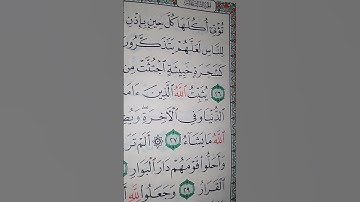 تُؤْتِىٓ أُكُلَهَا كُلَّ حِينٍۭ بِإِذْنِ
لِلنَّاسِ لَعَلَّهُمْ يَتَذَكَّرُونَ
كَشَجَرَةٍ خَبِيثَةٍ ٱجْتُثَّتْ مِن
٢٦ يُثَبِّتُ ٱللَّهُ ٱلَّذِينَ ءَامَ
ٱلدُّنْيَا وَفِى ٱلْءَاخِرَةِ ۖ وَيُضِ
ٱللَّهُ مَا يَشَآءُ ٢٧ ۞ أَلَمْ تَرَ
وَأَحَلُّوا۟ قَوْمَهُمْ دَارَ ٱلْبَوَارِ
ٱلْقَرَارُ ٢٩ وَجَعَلُوا۟ لِلَّهِ